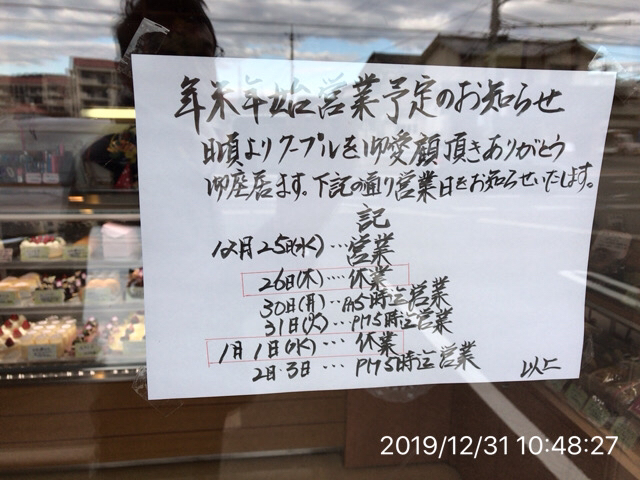 年末年始営業予定のお知らせ
日頃よりクープルを御愛顧頂きありがとう
御座居ます。下記の通り営業日をお知らせいたします。
記
12月25日(水)…営業
26日(木)…休業
30日(月)…PM5時迄営業
31日(火)…PM5時迄営業
1月1日(水)…休業
2日・3日…PM5時迄営業
以上
2019/12/31 10:48:27